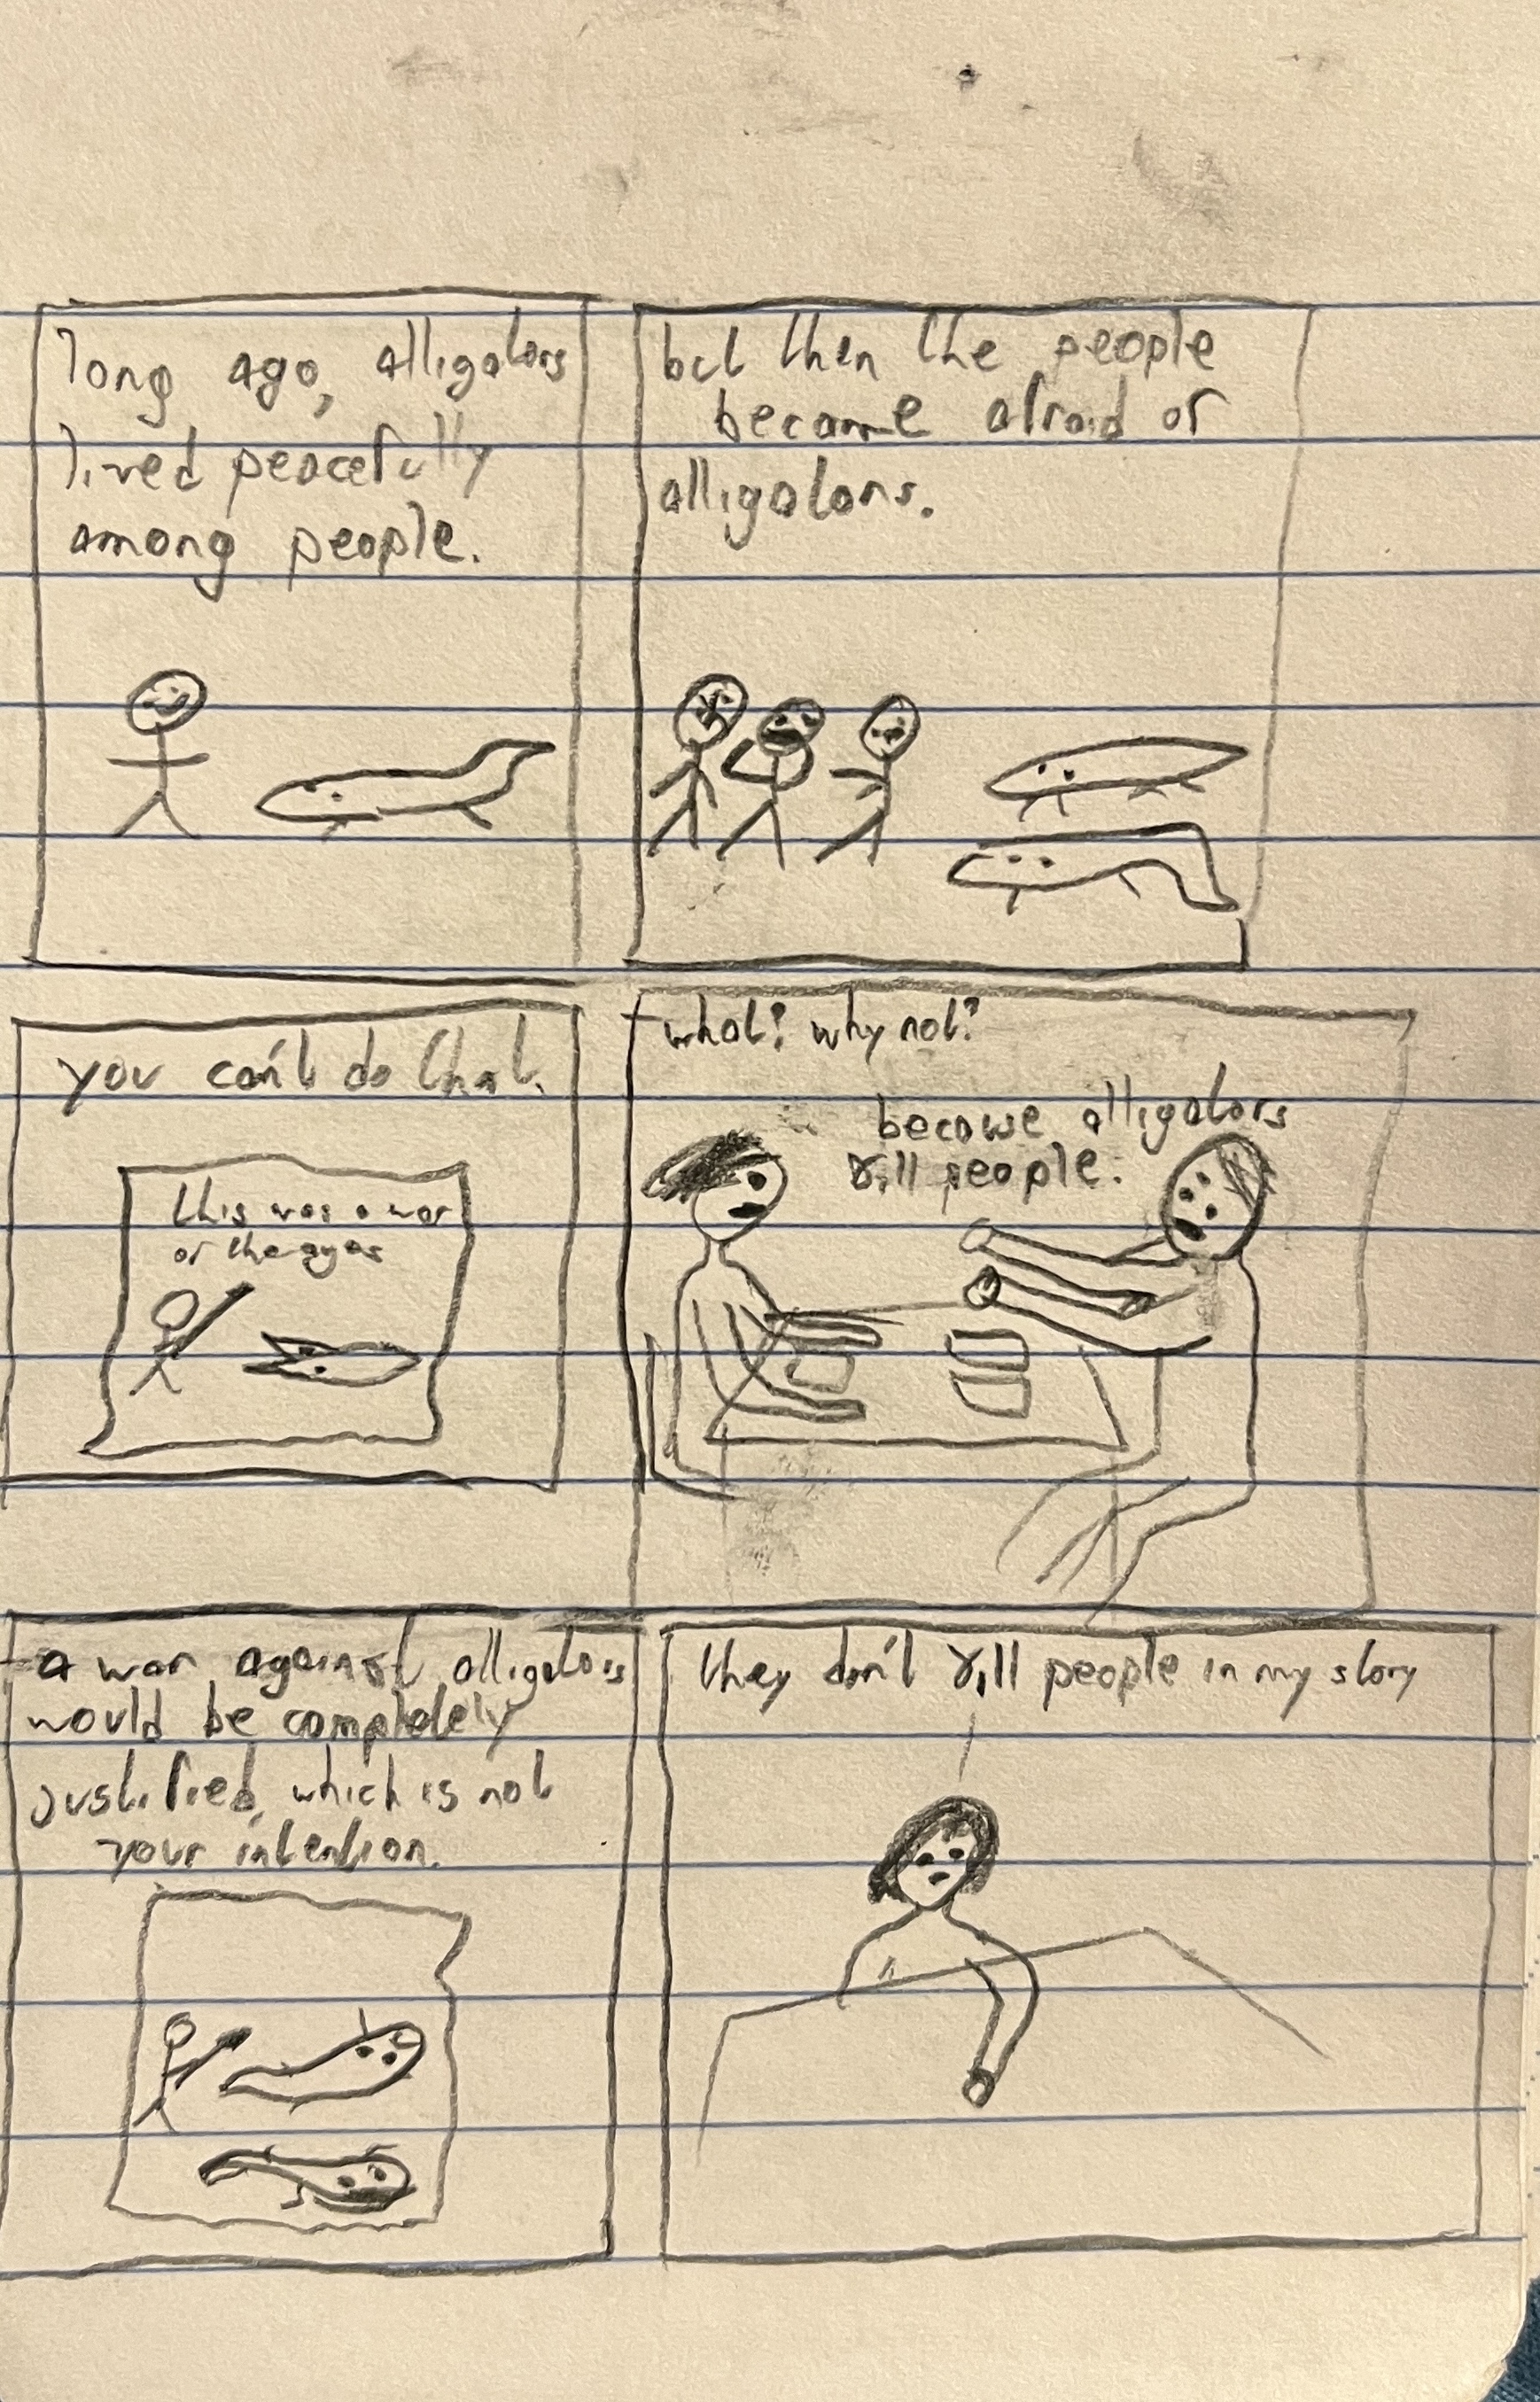 long ago, alligators
lived peacefully
among people.
but then the people
became afraid of
alligators.
you can't do that.
this was a war
of the ages
what? why not?
because alligators
kill people.
a war against alligators
would be completely
justified, which is not
your intention.
they don't kill people in my story